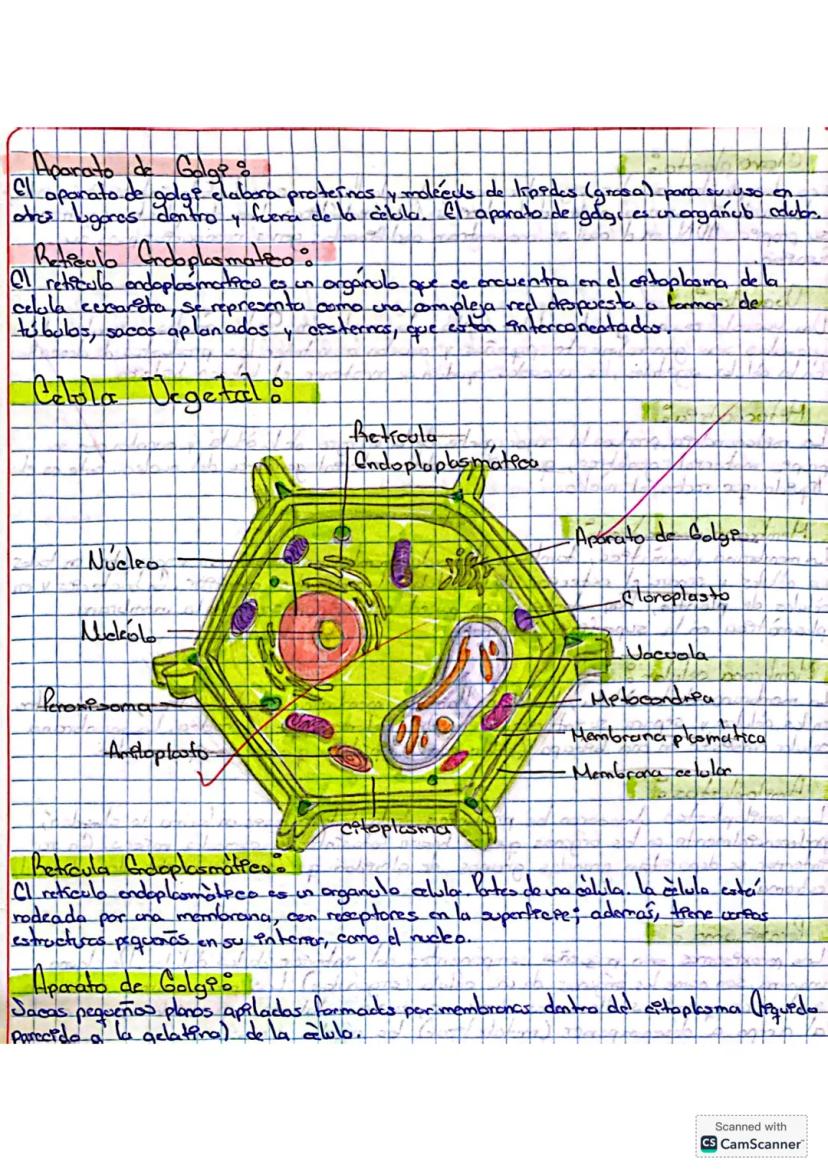 Aparato de Golgi:
El aparato de golgi elabora proteínas y moléculs de lípidos (grasa) para su uso en
otros lugares dentro y fuera de la célula. El aparato de golgi es un orgánulo celular.
Retículo Endoplasmatico:
El retículo endoplasmatico es un orgánulo que se encuentra en el citoplasma de la
celula eucariota, se representa como una compleja red despuesta a formar de
túbulos, sacos aplanados y cisternas, que están interconectados.
Celula Vegetal:
Retícula
Endoplaplasmática
Aparato de Golgi
Núcleo
Cloroplasto
Nucleólo
Vacuola
Peroxisoma
Metocondria
Membrana plasmática
Amiloplasto
Membrana celular
citoplasma
Retícula Endoplasmático:
El retículo endoplasmático es un organulo celular. Partes de una célula. la célula está
rodeada por una membrana, con receptores en la superficie; además, tiene varias
estructuras pequeñas en su interior, como el nucleo.
Aparato de Golgi:
Sacos pequeños planos apilados formados por membranas dentro del citoplasma (líquido
parecido a la gelatina) de la célula.
Scanned with
CS CamScanner